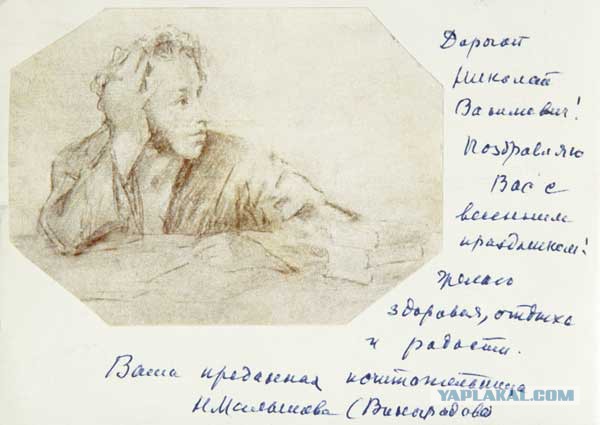 Дорогой
Николай
Васильевич!
Поздравляю
Вас с
весенним
праздником!
Желаю
здоровья, отдыха
и радости.
Ваша преданная почитательница
Н (Виноградова)
YAPLAKAL.COM